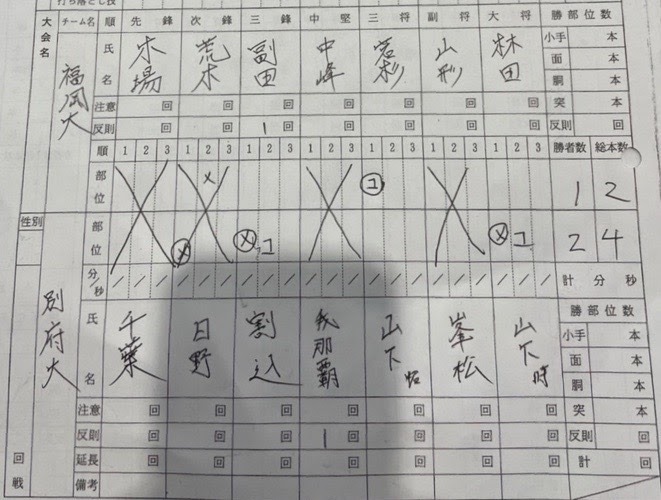 打ち落とし技
大会名 チーム名 順 先鋒 次鋒 三鋒 中堅 三将 副将 大将 勝部位数
福岡大 氏名 木場 荒木 副田 中峰 岩杉 山形 林田
小手 本
面 本
胴 本
注意 回 回 回 回 回 回 回 突 本
反則 回 回 1回 回 回 回 回 反則 回
順 1 2 3 1 2 3 1 2 3 1 2 3 1 2 3 1 2 3 1 2 3 勝者数 総本数
部位 メ コ 1 2
性別 部位 メ メ コ メ コ 2 4
分/秒 / / / / / / / / / / / / / / / / / / / / / 計 分 秒
別府大 氏名 千葉 日野 割込 我那覇 山下 峯松 山下 勝部位数
小手 本
面 本
胴 本
注意 回 回 回 回 回 回 回 突 本
反則 回 回 回 1回 回 回 回 反則 回
回戦 延長 回 回 回 回 回 回 回 計 回
備考